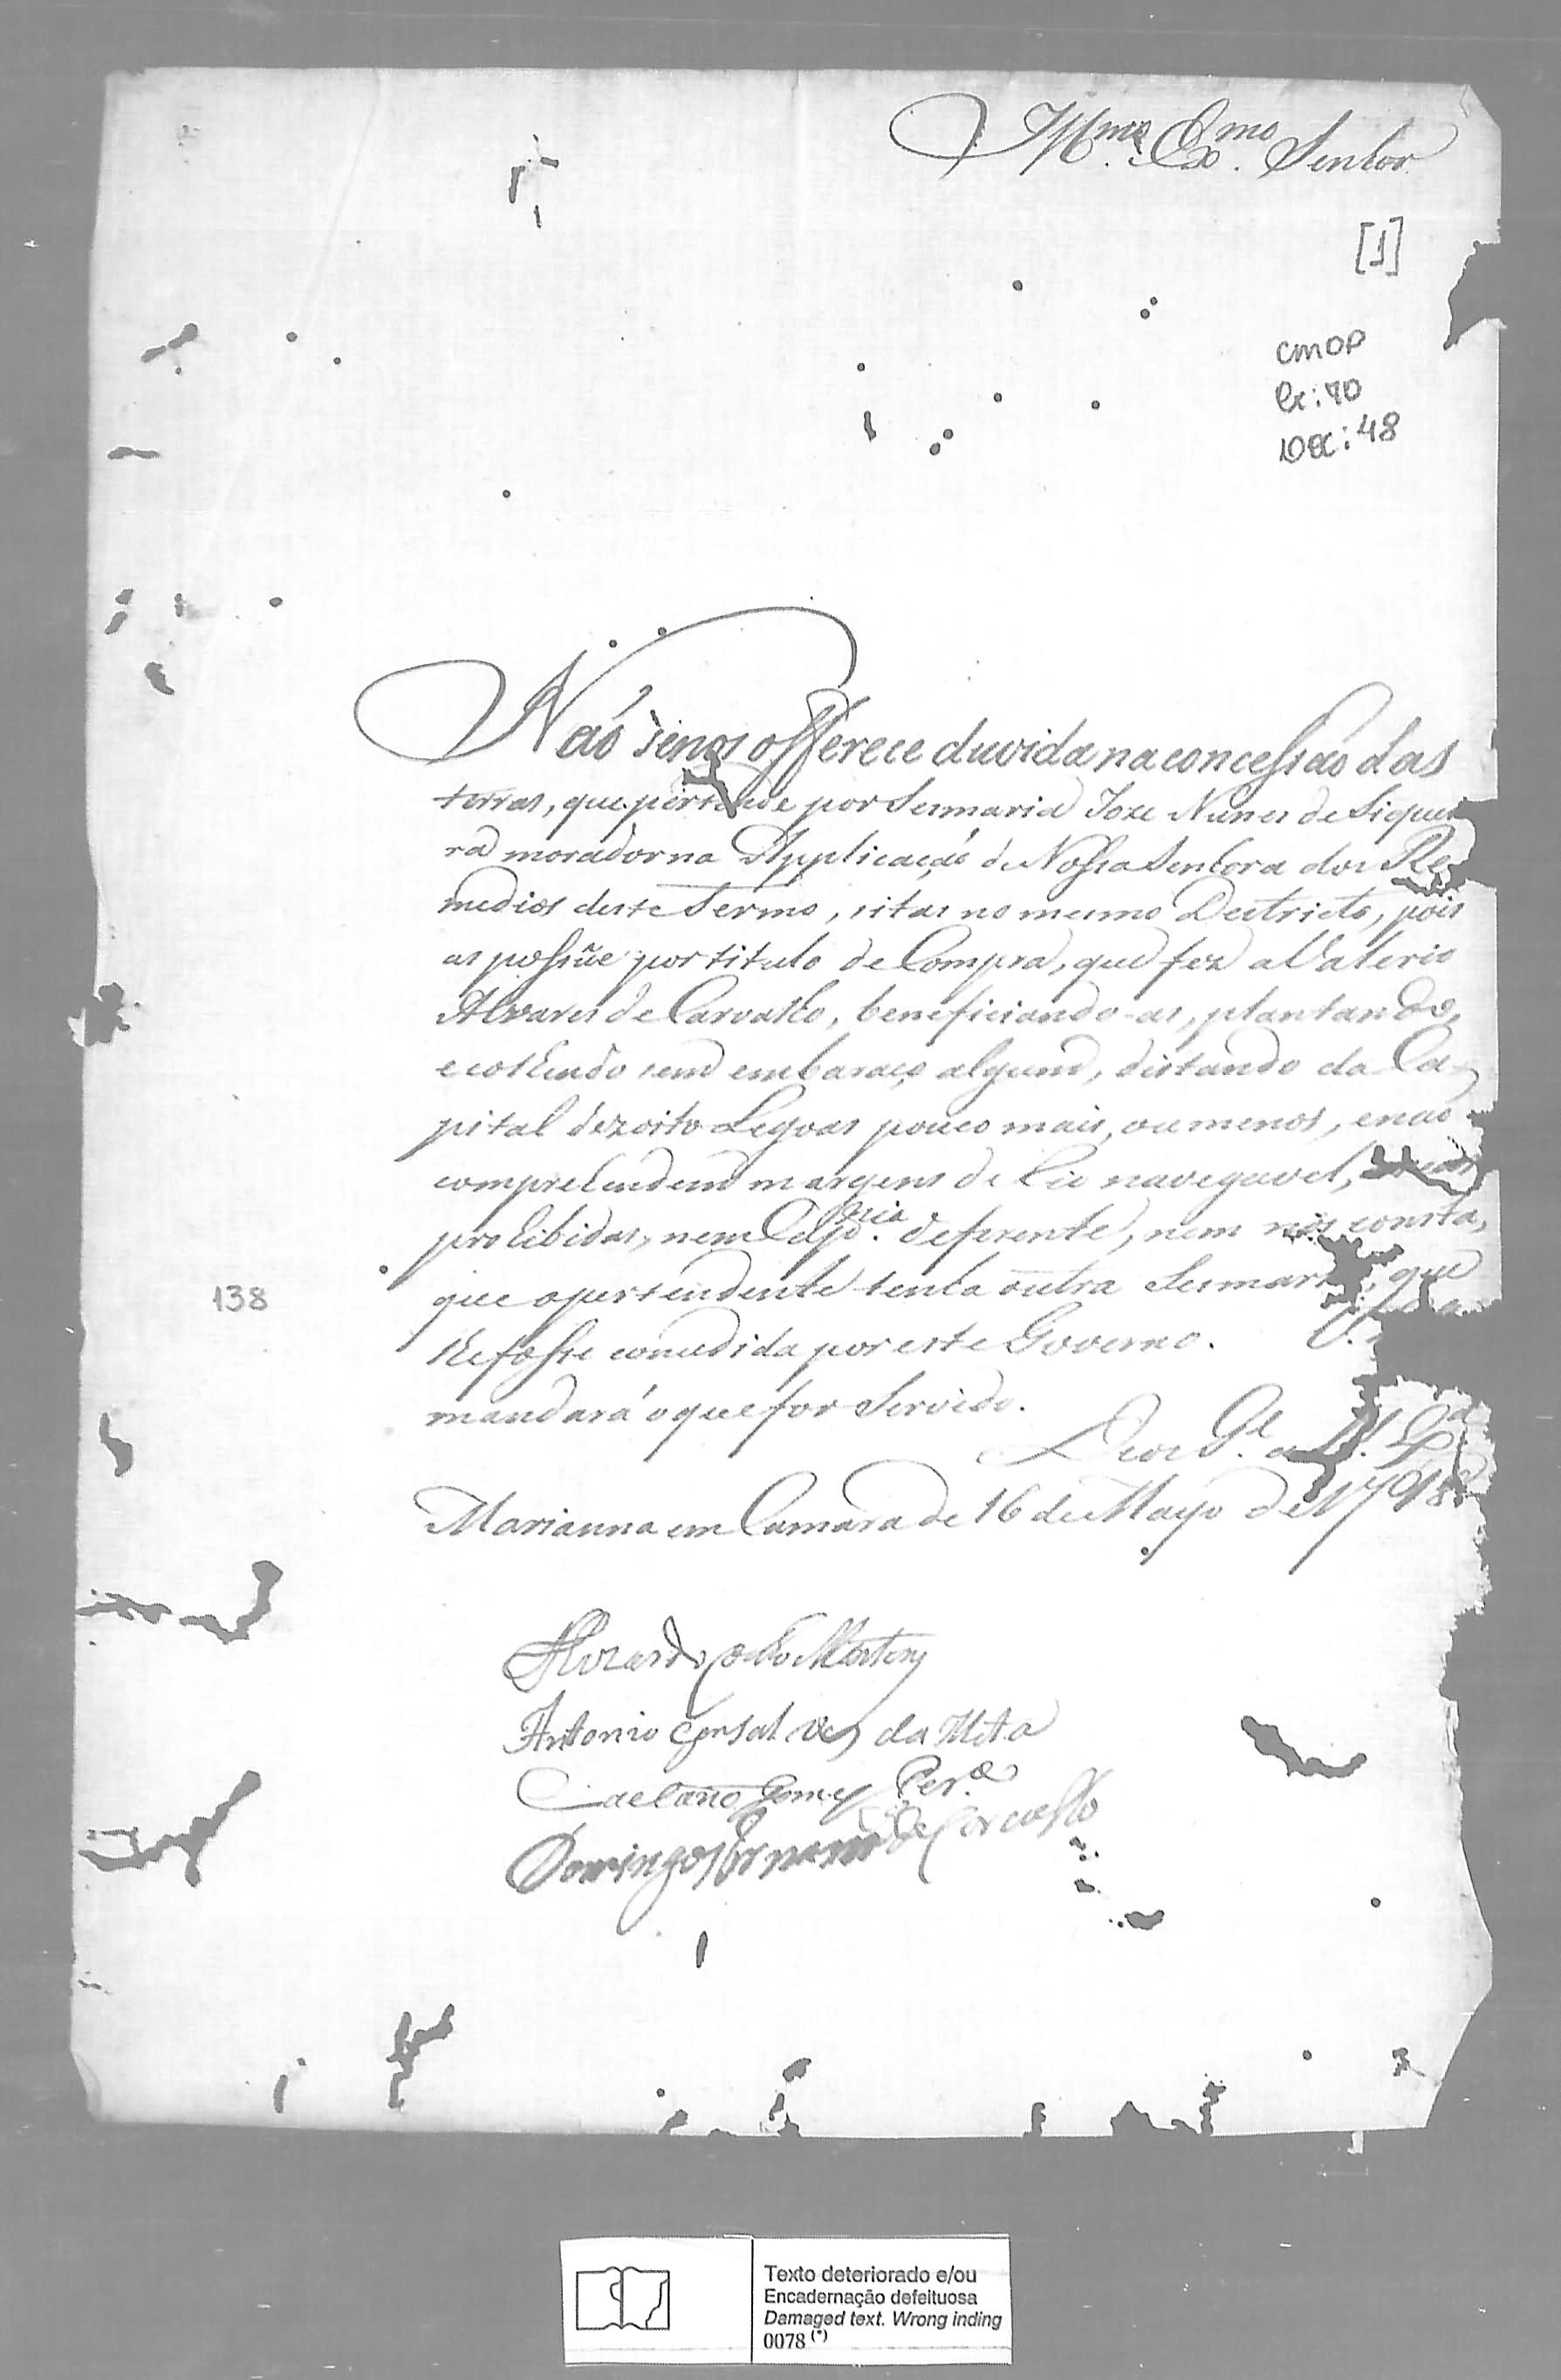 Illmo. Exmo. Senhor
[1]
CMOP
Cx: 70
DOC: 48
Naó se nos offerece duvida na concessaó das
terras, que pertende por Sesmaria Joze Nunes de Siquei
ra morador na Applicaçaó de Nossa Senhora dos Re
medios deste Termo, sitas no mesmo Destricto, pois
as possúe por titulo de Compra, que fez a Valerio
Alvares de Carvalho, beneficiando-as, plantando,
e colhendo sem embaraço algum, distando da Ca-
pital dezoito Legoas pouco mais, ou menos, e naó
comprehendem margens de Rio navegavel,
prohibidas, nem deferente, nem nos consta,
que o pertendente tenha outra Sesmaria, que
lhe fosse concedida por este Governo. V.
mandará o que for Servido.
Deos Ge. a V. Exa.
138
Marianna em Camara de 16 de Mayo de 1798
Antonio Gonsalves da Mota
Caetano Gomes Pera.
Domingos de Carvalho
Texto deteriorado e/ou
Encadernação defeituosa
Damaged text. Wrong inding
0078 (*)